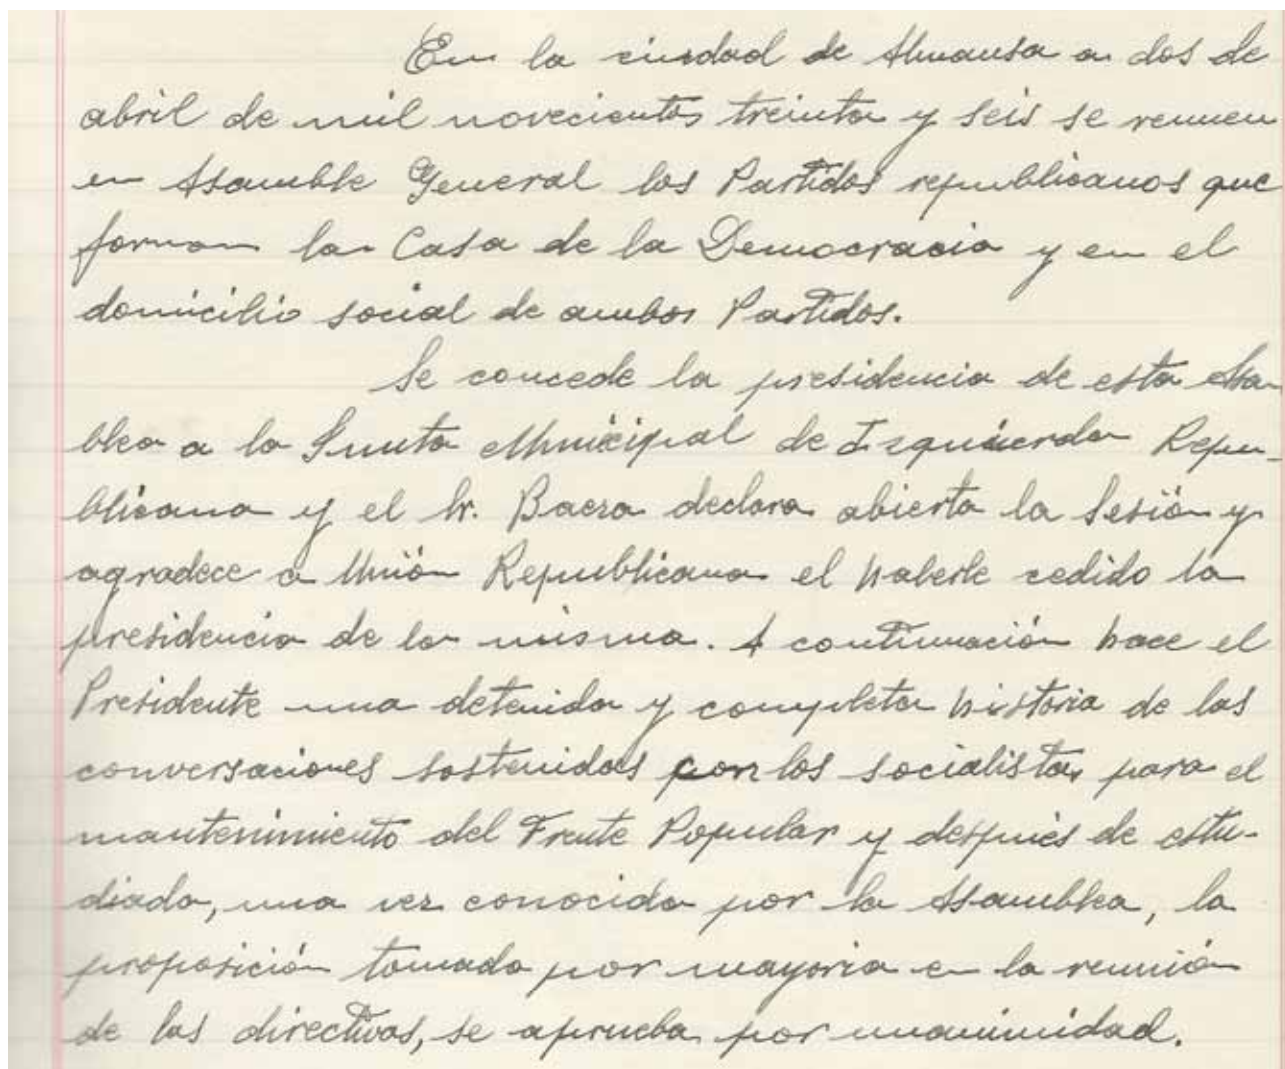 En la ciudad de Almansa a dos de
abril de mil novecientos treinta y seis se reunen
en Asamble General los Partidos republicanos que
forman la Casa de la Democracia y en el
domicilio social de ambos Partidos.
Se concede la presidencia de esta Asam
blea a la Junta Municipal de Izquierda Repu-
blicana y el Sr. Baeza declara abierta la Sesión y
agradece a Unión Republicana el haberle cedido la
presidencia de la misma. A continuación hace el
Presidente una detenida y completa historia de las
conversaciones sostenidas con los socialistas para el
mantenimiento del Frente Popular y después de estu-
diada, una vez conocida por la Asamblea, la
proposición tomada por mayoria en la reunión
de las directivas, se aprueba por unanimidad.